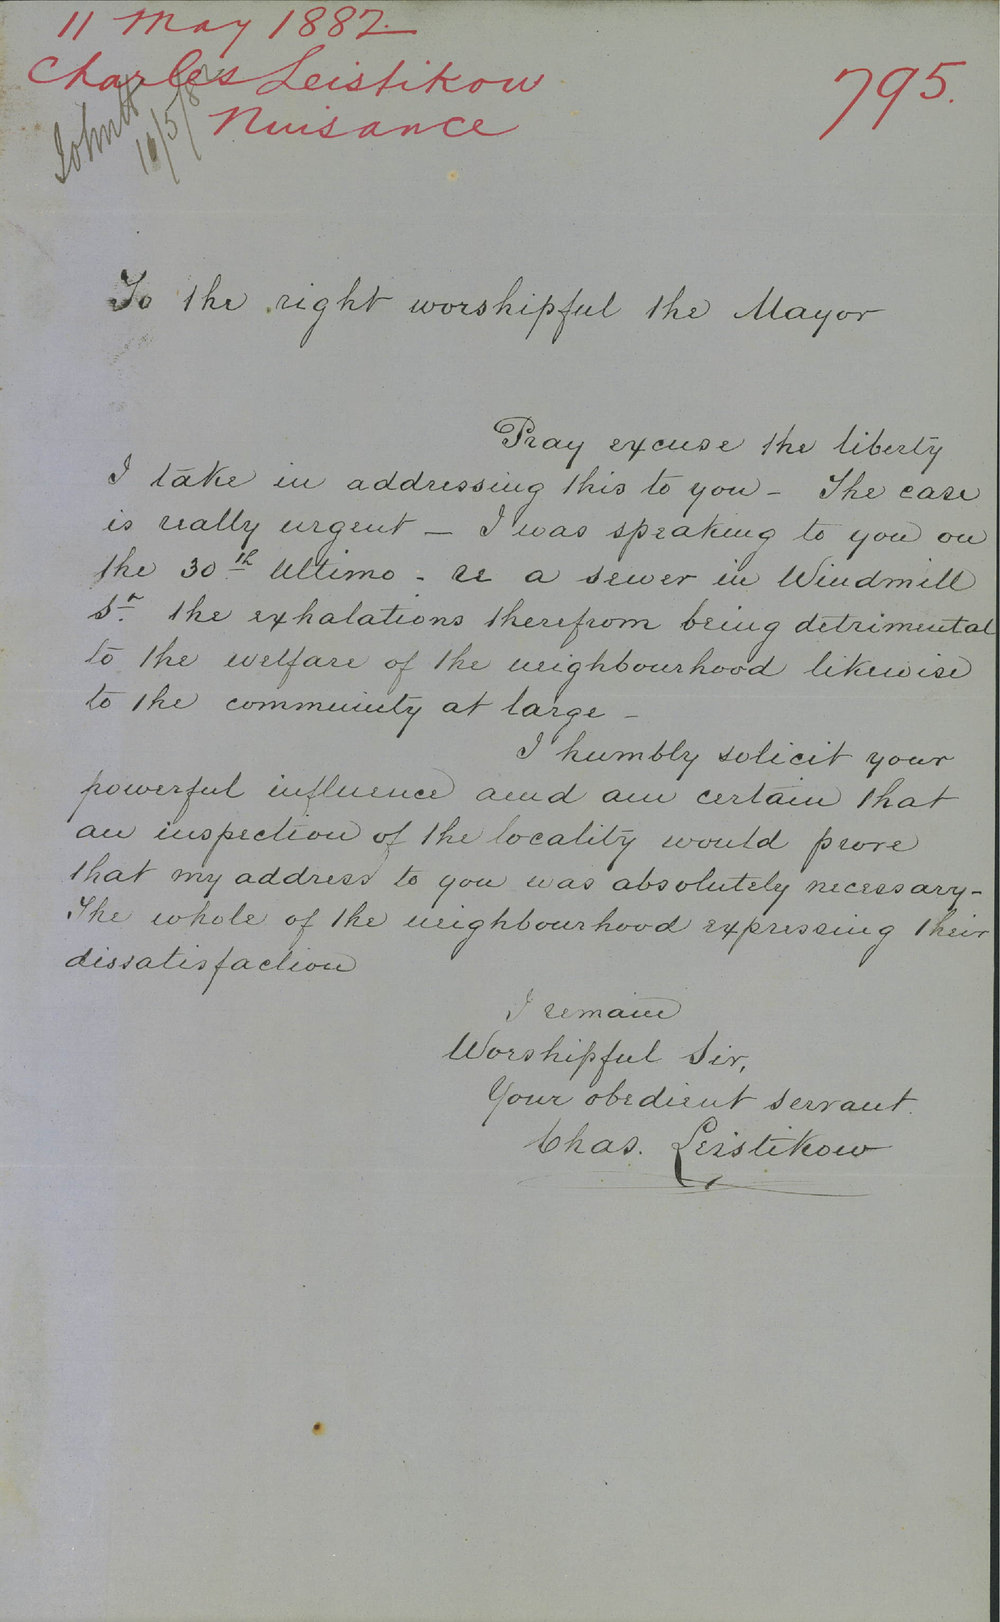 11 May 1882.
Charles Leistikow
Nuisance
795.
16/5/82
To the right worshipful the Mayor
Pray excuse the liberty
I take in addressing this to you – The case
is really urgent – I was speaking to you on
the 30th Ultimo - re a sewer in Windmill
St. the exhalations therefrom being detrimental
to the welfare of the neighbourhood likewise
to the community at large –
I humbly solicit your
powerful influence and am certain that
an inspection of the locality would prove
that my address to you was absolutely necessary –
The whole of the neighbourhood expressing their
dissatisfaction
I remain
Worshipful Sir,
Your obedient servant.
Chas. Leistikow